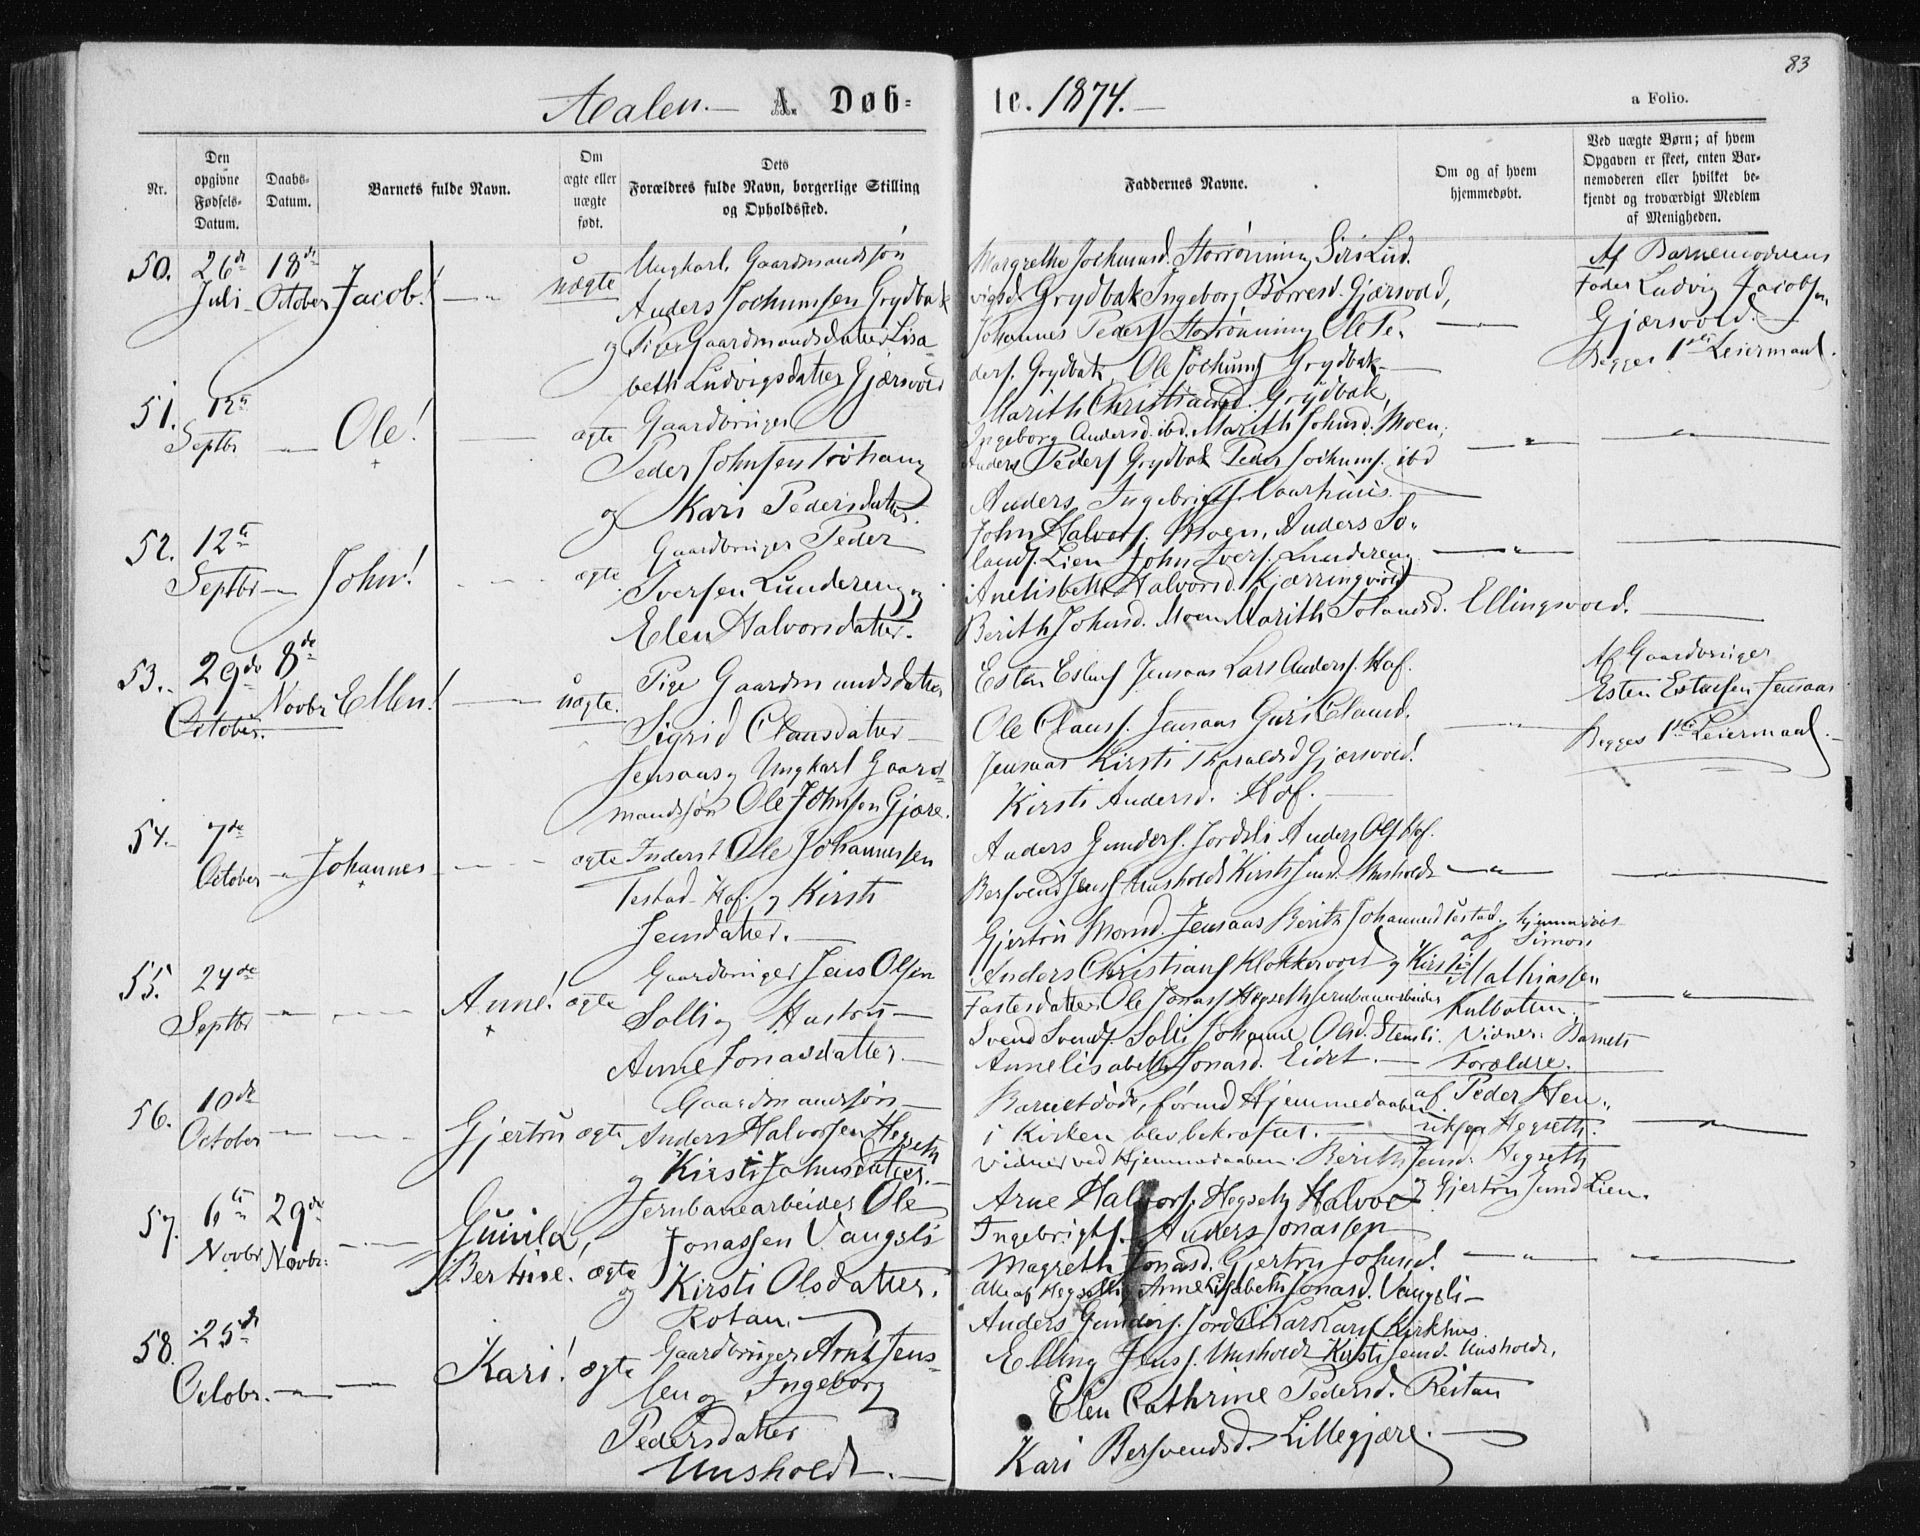 83
Aalen. A. Døb=
te. 1874.
a Folio.
Nr.
Den opgivne Fødsels-Datum.
Daabs-Datum.
Barnets fulde Navn.
Om ægte eller uægte født.
Dets Forældres fulde Navn, borgerlige Stilling og Opholdssted.
Faddernes Navne.
Om og af hvem hjemmedøbt.
Ved uægte Børn; af hvem Opgaven er skeet, enten Barnemoderen eller hvilket bekjendt og troværdigt Medlem af Menigheden.
50. 26de Juli 18de October Jacob! uægte
Ungkarl Gaardmandssøn
Anders Jochumsen Grydbak
og Pige Gaardmandsdatter Lisa-
beth Ludvigsdatter Gjærsvold
Margrethe Jochumsd. Storrønning Siri Lud-
vigsd. Grydbak Ingeborg Børresd. Gjærsvold,
Johannes Peders. Storrønning Ole Pe-
ders. Grydbak, Ole Jochums. Grydbak
Af Barnemoderens
Fader Ludvig Jacobsen
Gjærsvold.
Begges 1ste Leiermaal.
51. 12te Septbr Ole! ægte
Gaardbruger
Peder Johnsen
og Kari Pedersdatter.
Marith Christiansd. Grydbak,
Ingeborg Andersd. ibd. Marith Johnsd. Moen,
Anders Peders. Grydbak Peder Jochums. ibd
Anders Ingebrigts. Vaarhuus.
52. 12te Septbr John! ægte
Gaardbruger Peder
Iversen Lundereng og
Elen Halvorsdatter.
John Halvors. Moen, Anders To-
lands. Lien John Ivers. Lundereng
Anelisbeth Halvorsd. Kjærringvold
Berith Johnsd. Moen Marith Tolansd. Ellingsvold.
53. 29de October. 8de Novbr Ellen! uægte.
Pige Gaardmandsdatter
Sigrid Clausdatter
Jensaas og Ungkarl Gaard-
mandssøn Ole Johnsen Gjære.
Esten Estens. Jensaas Lars Anders. Hof.
Ole Claus. Jensaas Guri Clausd.
Jensaas Kirsti Tharaldsd Gjærsvold!
Kirsti Andersd. Hof.
Af Gaardbruger
Esten Estensen Jensaas
Begges 1ste Leiermaal.
54. 7de October Johannes ægte
Inderst Ole Johannessen
Testad Hof. og Kirsti
Jensdatter.
Anders Gunders. Jordsli Anders Ols. Hof.
Bersvend Jens. Unsholdt Kirsti Jensd. Unsholdt
Gjertru Monsd. Jensaas Berith Johannesd Testad.
55. 24de Septbr Anne! ægte
Gaardbruger Jens Olsen
Solli og Hustru
Anne Jonasdatter.
Anders Christians. Klokkervold og Kirsti
Fostersdatter Ole Jonass. Hegseth Jernbanearbeider
Svend Svends. Solli Johanne Olsd. Stensli.
Annelisabeth Jonasd. Eidet.
hjemmedøbt
af Simon
Mathiassen
Kulbotten.
Vidner: Barnets
Forældre.
56. 10de October Gjertru ægte
Gaardmandssøn
Anders Halvorsen Hegseth
og Kirsti Johnsdatter.
Barnet døde, førend Hjemmedaaben
i Kirken blev bekræftet.
Vidner ved Hjemmedaaben: Berith Jensd. Hegseth
og Gjertru Jensd Lien.
af Peder Hen-
riksen Hegseth.
57. 6te Novbr 29de Novbr. Gunild, Bertine! ægte
Jernbanearbeider Ole
Jonassen Vangsli
og Kirsti Olsdatter.
Rotan.
Arne Halvors. Hegseth Halvor
Ingebrigts. Anders Jonassen
Magreth Jonasd. Gjertru Johnsd.
Alle af Hegseth og Anne Elisabeth Jonasd. Vangsli
58. 25de Octobr. Kari! ægte
Gaardbruger Arnt Jens-
sen og Ingeborg
Pedersdatter
Unsholdt.
Anders Gunders. Jordsli Lars Lars. Kirkhus.
Elling Jens. Unsholdt Kirsti Jensd. Unsholdt,
Elen Cathrine Pedersd. Reitan
Kari Bersvendsd. Lillegjære.